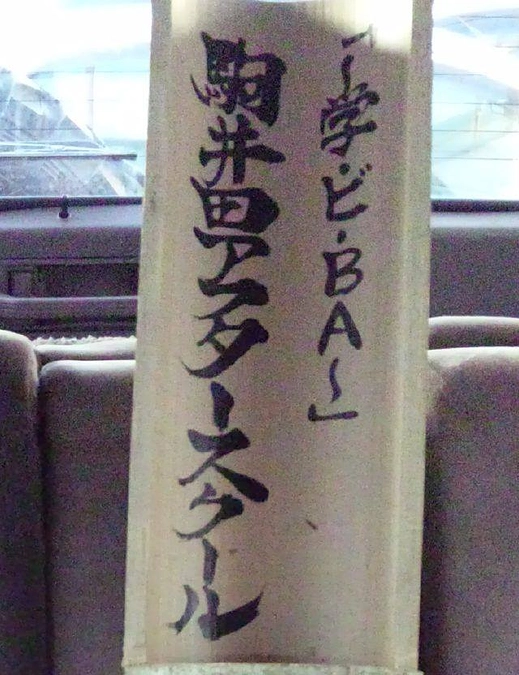 「～学・ビ・BA～」
駒井田アフタースクール